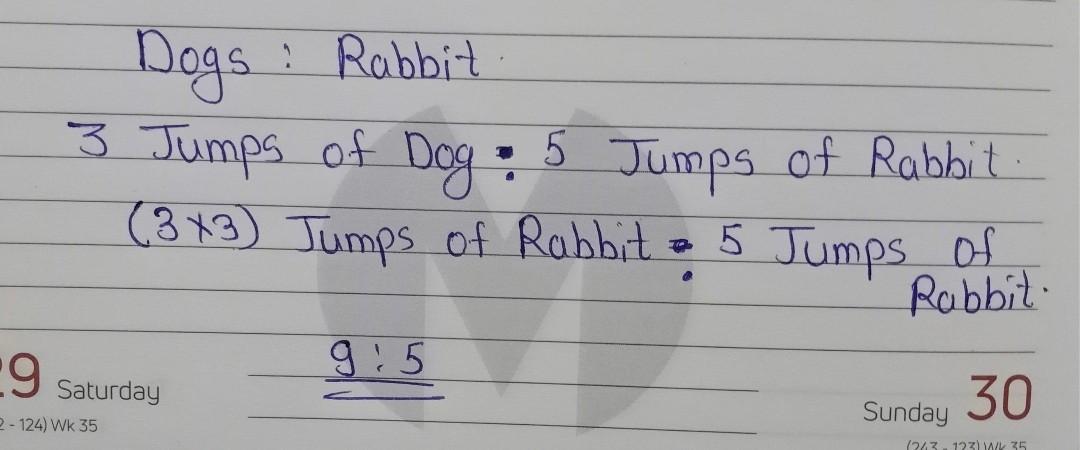 Dogs : Rabbit
3 Jumps of Dog : 5 Jumps of Rabbit.
(3×3) Jumps of Rabbit : 5 Jumps of
Rabbit.
9 : 5
29 Saturday
2 - 124) Wk 35
Sunday 30
(243 - 123) Wk 35